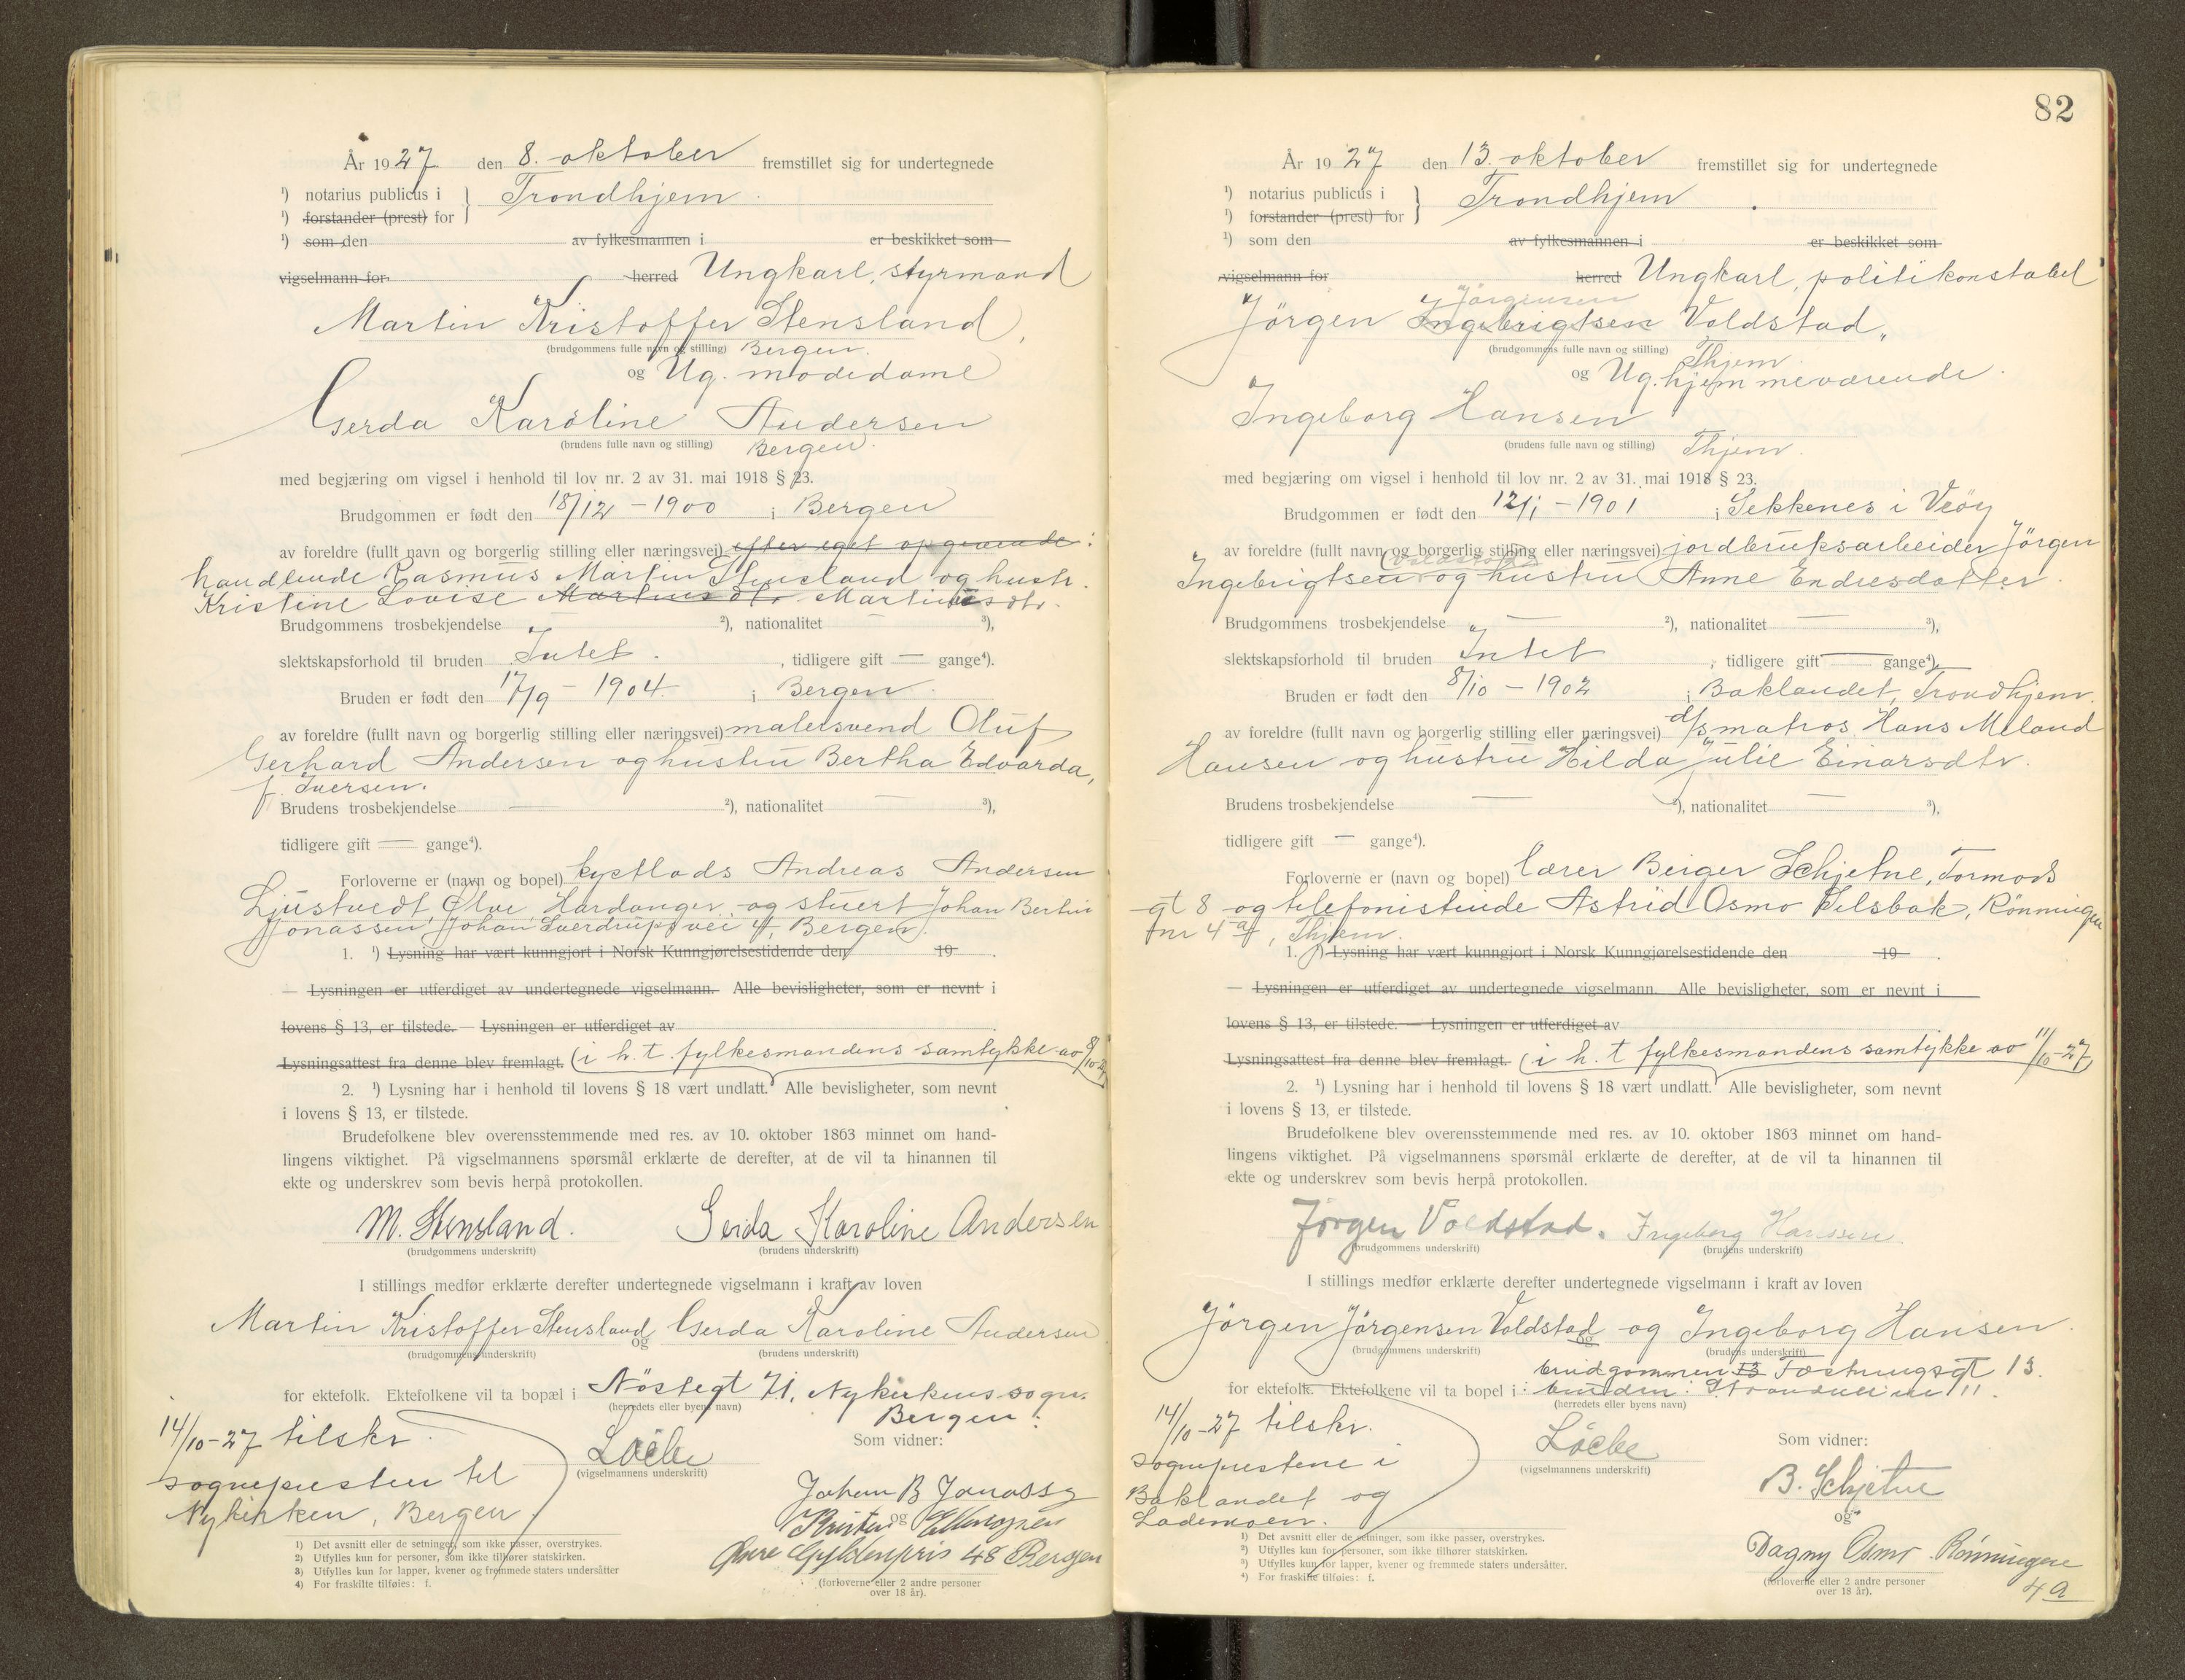 År 1927 den 8. oktober fremstillet sig for undertegnede
¹) notarius publicus i } Trondhjem
¹) forstander (prest) for
¹) som den av fylkesmannen i er beskikket som
vigselmann for herred Ungkarl, styrmand
Martin Kristoffer Stensland,
(brudgommens fulle navn og stilling) Bergen.
og Ug. modedame
Gerda Karoline Andersen
(brudens fulle navn og stilling) Bergen.
med begjæring om vigsel i henhold til lov nr. 2 av 31. mai 1918 § 23.
Brudgommen er født den 18/12 - 1900 i Bergen
av foreldre (fullt navn og borgerlig stilling eller næringsvei) efter eget opgivende:
handlende Rasmus Martin Stensland og hustr.
Kristine Lovise Martinusdtr. Martinusdtr.
Brudgommens trosbekjendelse ²), nationalitet ³),
slektskapsforhold til bruden Intet. , tidligere gift — gange⁴).
Bruden er født den 17/9 - 1904 i Bergen.
av foreldre (fullt navn og borgerlig stilling eller næringsvei) malersvend Oluf
Gerhard Andersen og hustru Bertha Edvarda,
f. Iversen.
Brudens trosbekjendelse — ²), nationalitet — ³),
tidligere gift — gange⁴).
Forloverne er (navn og bopel) Andreas Andersen
Ljustvedt, Ølve, Hardanger, og stuert Johan Bertin
Jonassen, Johan Sverdrups vei 4, Bergen.
1. ¹) Lysning har vært kunngjort i Norsk Kunngjørelsestidende den 19 .
— Lysningen er utferdiget av undertegnede vigselmann. Alle bevisligheter, som er nevnt i
lovens § 13, er tilstede. — Lysningen er utferdiget av
Lysningsattest fra denne blev fremlagt. (i h. t. fylkesmandens samtykke av 8/10-27)
2. ¹) Lysning har i henhold til lovens § 18 vært undlatt. Alle bevisligheter, som nevnt
i lovens § 13, er tilstede.
Brudefolkene blev overensstemmende med res. av 10. oktober 1863 minnet om hand-
lingens viktighet. På vigselmannens spørsmål erklærte de derefter, at de vil ta hinannen til
ekte og underskrev som bevis herpå protokollen.
M. Stensland. Gerda Karoline Andersen
(brudgommens underskrift) (brudens underskrift)
I stillings medfør erklærte derefter undertegnede vigselmann i kraft av loven
Martin Kristoffer Stensland og Gerda Karoline Andersen
(brudgommens underskrift) (brudens underskrift)
for ektefolk. Ektefolkene vil ta bopæl i Nöstegt 71, Nykirkens sogn.
(herredets eller byens navn) Bergen.
14/10-27 tilskr.
sognepresten til
Nykirken, Bergen
(vigselmannens underskrift)
Som vidner:
Johan B Jonassen
og
Kristen
Øvre Gyldenpris 48 Bergen
(forloverne eller 2 andre personer
over 18 år).
1) Det avsnitt eller de setninger, som ikke passer, overstrykes.
2) Utfylles kun for personer, som ikke tilhører statskirken.
3) Utfylles kun for lapper, kvener og fremmede staters undersåtter
4) For fraskilte tilføies: f.
82
År 1927 den 13. oktober fremstillet sig for undertegnede
¹) notarius publicus i } Trondhjem
¹) forstander (prest) for
¹) som den av fylkesmannen i er beskikket som
vigselmann for herred Ungkarl, politikonstabel
Jörgensen
Jörgen Ingebrigtsen Voldstad,
(brudgommens fulle navn og stilling) Thjem.
og Ug. hjemmeværende
Ingeborg Hansen
(brudens fulle navn og stilling) Thjem.
med begjæring om vigsel i henhold til lov nr. 2 av 31. mai 1918 § 23.
Brudgommen er født den 12/1 - 1901 i Sekkenes i Veöy
av foreldre (fullt navn og borgerlig stilling eller næringsvei) jordbruksarbeider Jörgen
(Voldstad)
Ingebrigtsen og hustru Anne Endresdatter.
Brudgommens trosbekjendelse — ²), nationalitet — ³),
slektskapsforhold til bruden Intet , tidligere gift — gange⁴).
Bruden er født den 8/10 - 1902 i Baklandet, Trondhjem.
av foreldre (fullt navn og borgerlig stilling eller næringsvei) d/s matros Hans Meland
Hansen og hustru Hilda Julie Einarsdtr.
Brudens trosbekjendelse — ²), nationalitet — ³),
tidligere gift — gange⁴).
Forloverne er (navn og bopel) lærer Berger Schjetne, Tormods
gt 8 og telefonistinde Astrid Osmo Selsbak, Rönningen
nr 4 a, Thjem.
1. ¹) Lysning har vært kunngjort i Norsk Kunngjørelsestidende den 19 .
— Lysningen er utferdiget av undertegnede vigselmann. Alle bevisligheter, som er nevnt i
lovens § 13, er tilstede. — Lysningen er utferdiget av
Lysningsattest fra denne blev fremlagt. (i h. t fylkesmandens samtykke av 11/10-27)
2. ¹) Lysning har i henhold til lovens § 18 vært undlatt. Alle bevisligheter, som nevnt
i lovens § 13, er tilstede.
Brudefolkene blev overensstemmende med res. av 10. oktober 1863 minnet om hand-
lingens viktighet. På vigselmannens spørsmål erklærte de derefter, at de vil ta hinannen til
ekte og underskrev som bevis herpå protokollen.
Jørgen Voldstad. Ingeborg Hanssen.
(brudgommens underskrift) (brudens underskrift)
I stillings medfør erklærte derefter undertegnede vigselmann i kraft av loven
Jörgen Jörgensen Voldstad og Ingeborg Hansen.
(brudgommens underskrift) (brudens underskrift)
brudgommen 13 Festningsgt 13.
for ektefolk. Ektefolkene vil ta bopel i: bruden: 11.
(herredets eller byens navn)
14/10-27 tilskr.
sogneprestene i
Baklandet og
Lademoen.
(vigselmannens underskrift)
Som vidner:
B. Schjetne
og
Dagny Osmo. Rönningen
4 a
(forloverne eller 2 andre personer
over 18 år).
¹) Det avsnitt eller de setninger, som ikke passer, overstrykes.
²) Utfylles kun for personer, som ikke tilhører statskirken.
³) Utfylles kun for lapper, kvener og fremmede staters undersåtter.
⁴) For fraskilte tilføies: f.